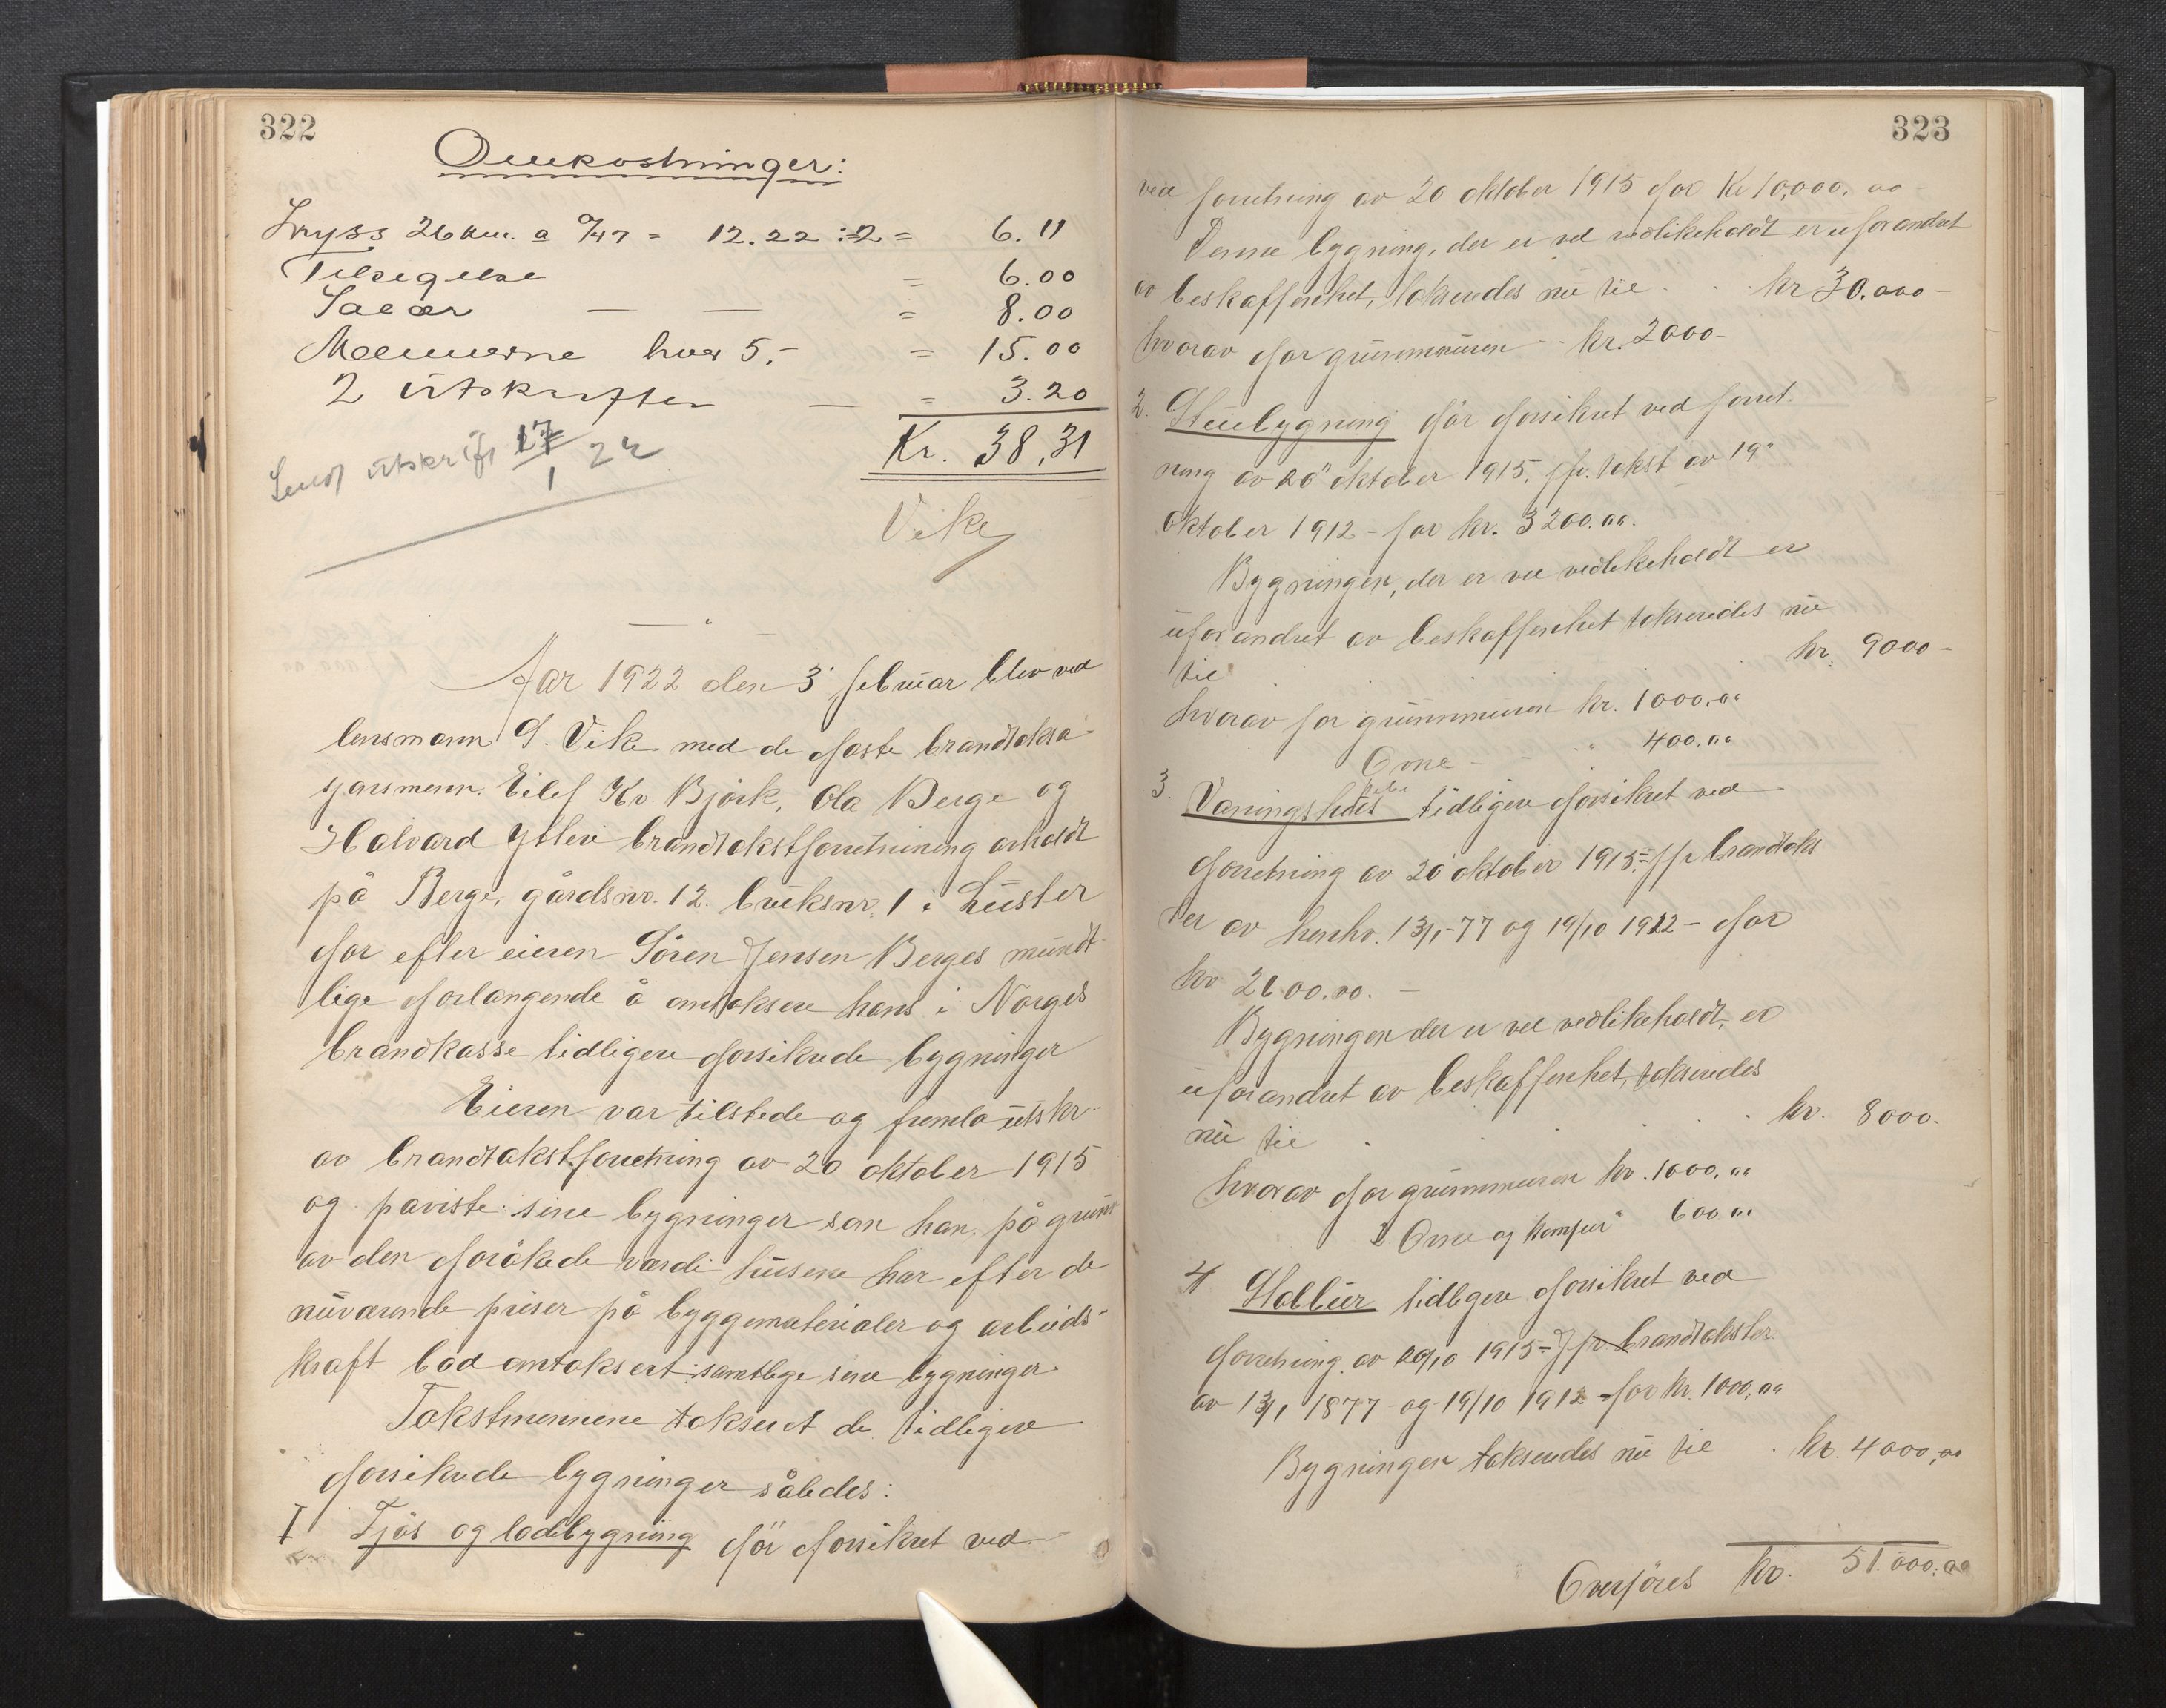 322
Omkostninger:
Skyss 26 km. a 0/47 = 12.22 : 2 = 6.11
Tilsigelse = 6.00
Salær — — = 8.00
Mænnerne hver 5.- = 15.00
2 utskrifter — = 3.20
Kr. 38,31
Send utskrift 17/1 22
Vike
Aar 1922 den 3 februar blev ved
lensmann S. Vike med de faste brandtaksa-
jonsmenn. Eilef Kr. Bjørk, Ola Berge og
Halvard Ytteri brandtakstforretning avholdt
på Berge, gårdsnr. 12. bruksnr. 1 i Luster
for efter eieren Sören Jensen Berges mundt
lige forlangende å omtaksere hans i Norges
brandkasse tidligere forsikrede bygninger
Eieren var tilstede og fremla utskr.
av brandtakstforretning av 20 oktober 1915
og paviste sine bygninger som han på grunn
av den forökede værdi husene har efter de
nuværende priser på byggematerialer og arbeids-
kraft bad omtaksert samtlige sine bygninger.
Takstmennene takseret de tidligere
forsikrede bygninger således:
I Fjös og ladebygning för forsikret ved
323
ved forretning av 20 oktober 1915 for Kr 10,000.00
Denne bygning, der er vel vedlikeholdt er uforandret
av beskaffenhet, takseredes nu til kr 30.000-
hvorav for grunnmuren kr. 2000-
2. Stuebygning för forsikret ved forret-
ning av 20" oktober 1915, jfr. takst av 19"
oktober 1912 - for kr. 3200.00.
Bygningen, der er vel vedlikeholdt er
uforandret av beskaffenhet takseredes nu
til kr. 9000-
hvorav for grunnmuren kr. 1000,00
Ovne - " 400,00
3. Vaaningshus tidligere forsikret ved
forretning av 20 oktober 1915 - jfr brandtaks
ter av henhv. 13/1-77 og 19/10 1912 - for
kr 2600.00. -
Bygningen der er vel vedlikeholdt, er
uforandret av beskaffenhet, takseredes
nu til kr. 8000.
hvorav for grunnmuren kr. 1000,00
" Ovne og komfur " 600,00
4 Stabbur tidligere forsikret ved
forretning av 20/10 1915 - Jfr brandtakster
av 13/1 1877 og 19/10 1912 - for kr. 1000,00
Bygningen takseredes nu til kr. 4000,00
Overföres kr. 51.000,00